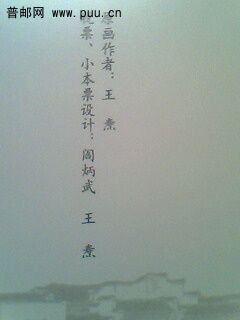 普邮网 www.puu.cn
原画作者：王熹
票、小本票设计：阎炳武 王熹